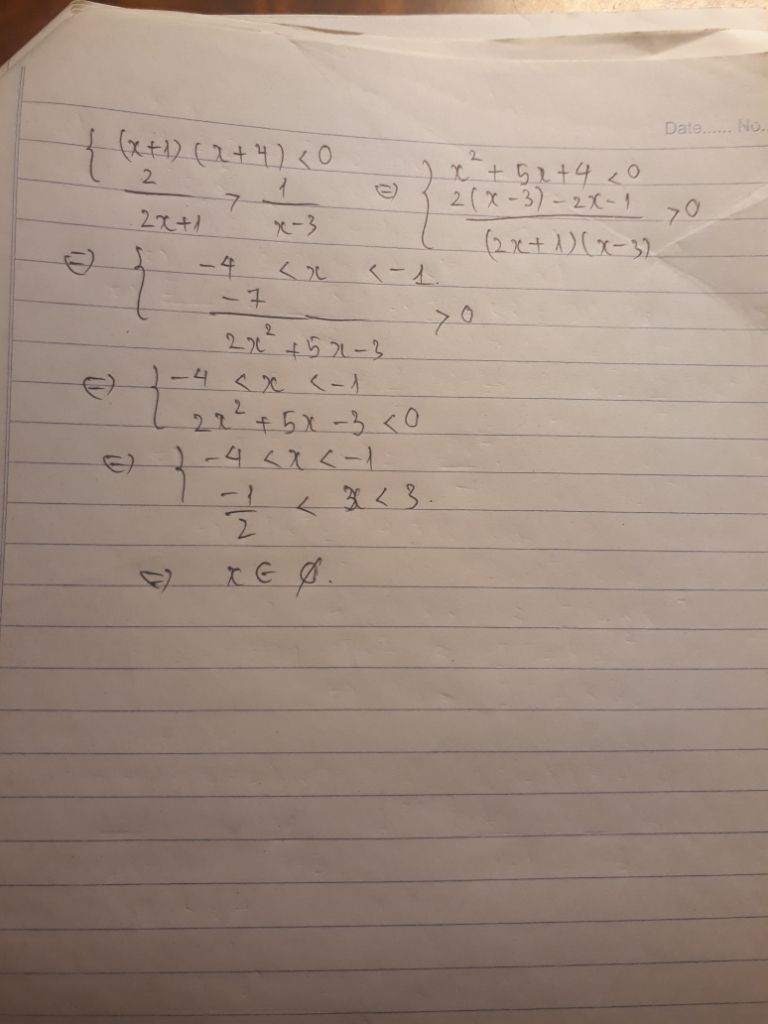 Date...... No..
{ (x+1)(x+4) < 0
2/(2x+1) > 1/(x-3)
⇔ { x² + 5x + 4 < 0
(2(x-3) - 2x - 1)/((2x+1)(x-3)) > 0
⇔ { -4 < x < -1.
-7/(2x² + 5x - 3) > 0
⇔ { -4 < x < -1
2x² + 5x - 3 < 0
⇔ { -4 < x < -1
-1/2 < x < 3.
⇔ x ∈ ∅.